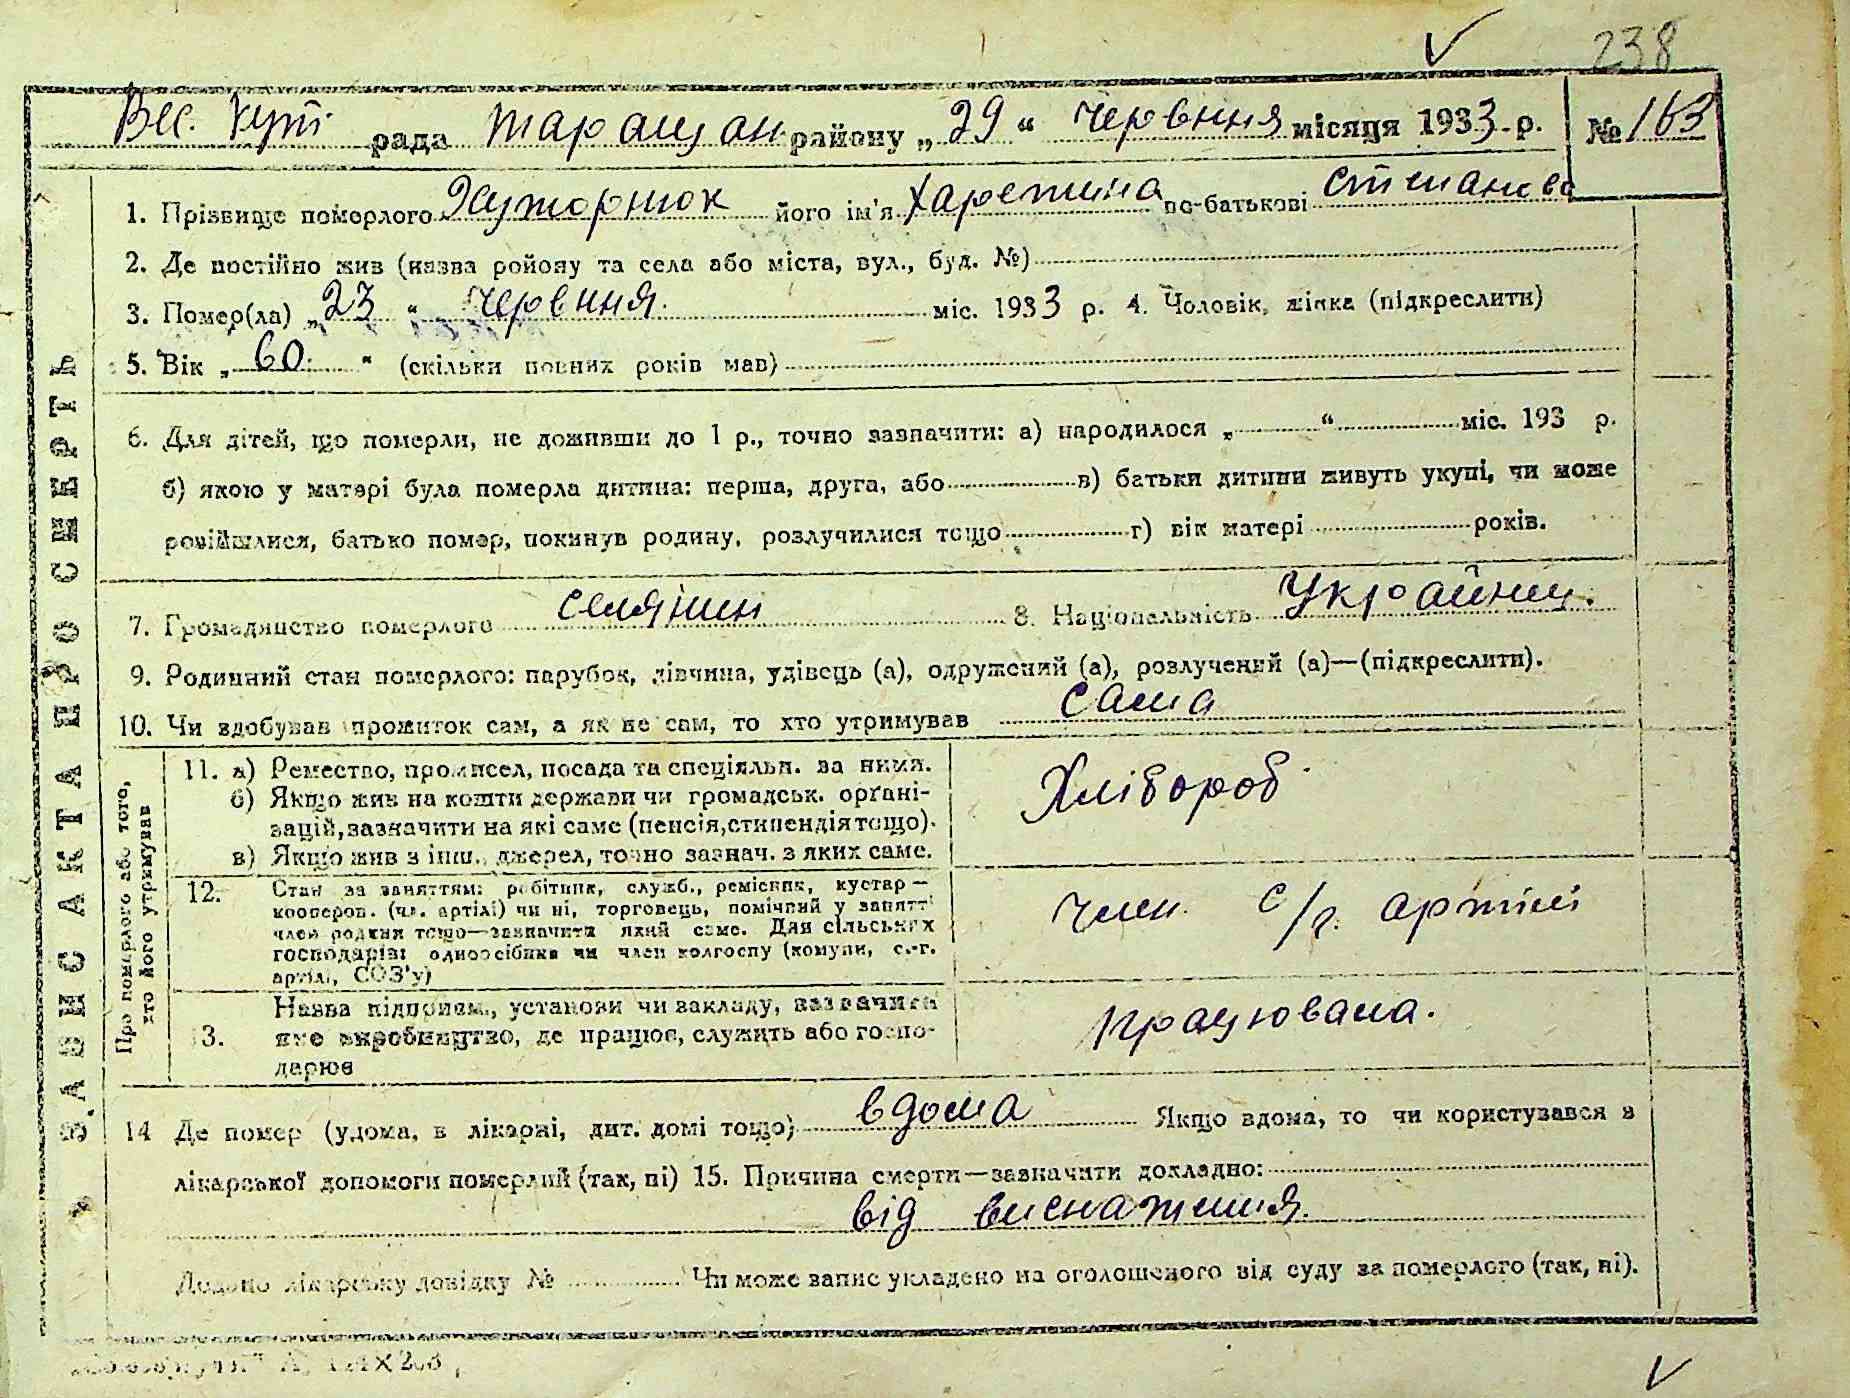 238
Вес. Кут рада Таращан району „29“ червння місяця 1933 р. № 163
ЗАПИС АКТА ПРО СМЕРТЬ
1. Прізвище померлого Хуторнюк його ім'я Харетина по-батькові Степанова
2. Де постійно жив (назва ройону та села або міста, вул., буд. №)
3. Помер(ла) „23“ червння міс. 1933 р. 4. Чоловік, жінка (підкреслити)
5. Вік „60“ (скільки повних років мав)
6. Для дітей, що померли, не доживши до 1 р., точно зазначити: а) народилося „ “ міс. 193 р.
б) якою у матері була померла дитина: перша, друга, або в) батьки дитини живуть укупі, чи може
розійшлися, батько помер, покинув родину, розлучилися тощо г) вік матері років.
7. Громадянство померлого селянин 8. Національність Украйнец.
9. Родинний стан померлого: парубок, дівчина, удівець (а), одружений (а), розлучений (а)—(підкреслити).
10. Чи здобував прожиток сам, а як не сам, то хто утримував сама
Про померлого або того, хто його утримував
11. а) Ремество, промисел, посада та спеціяльн. за ними.
б) Якщо жив на кошти держави чи громадськ. органі-
зацій, зазначити на які саме (пенсія, стипендія тощо).
в) Якщо жив з інш. джерел, точно зазнач. з яких саме.
Хлібороб
12. Стан за заняттям: робітник, служб., ремісник, кустар—
кооперов. (чл. артілі) чи ні, торговець, помічний у занятті
член родини тощо—зазначити який саме. Для сільських
господарів: одноосібник чи член колгоспу (комуни, с.-г.
артілі, СОЗ'у)
член с/г. артілі
13. Назва підприєм., установи чи закладу, зазначити
яке виробництво, де працює, служить або госпо-
дарює
працювала.
14 Де помер (удома, в лікарні, дит. домі тощо) вдома Якщо вдома, то чи користувався з
лікарської допомоги померлий (так, ні) 15. Причина смерти—зазначити докладно:
від виснаження.
Додано лікарську довідку № Чи може запис укладено на оголошеного від суду за померлого (так, ні).